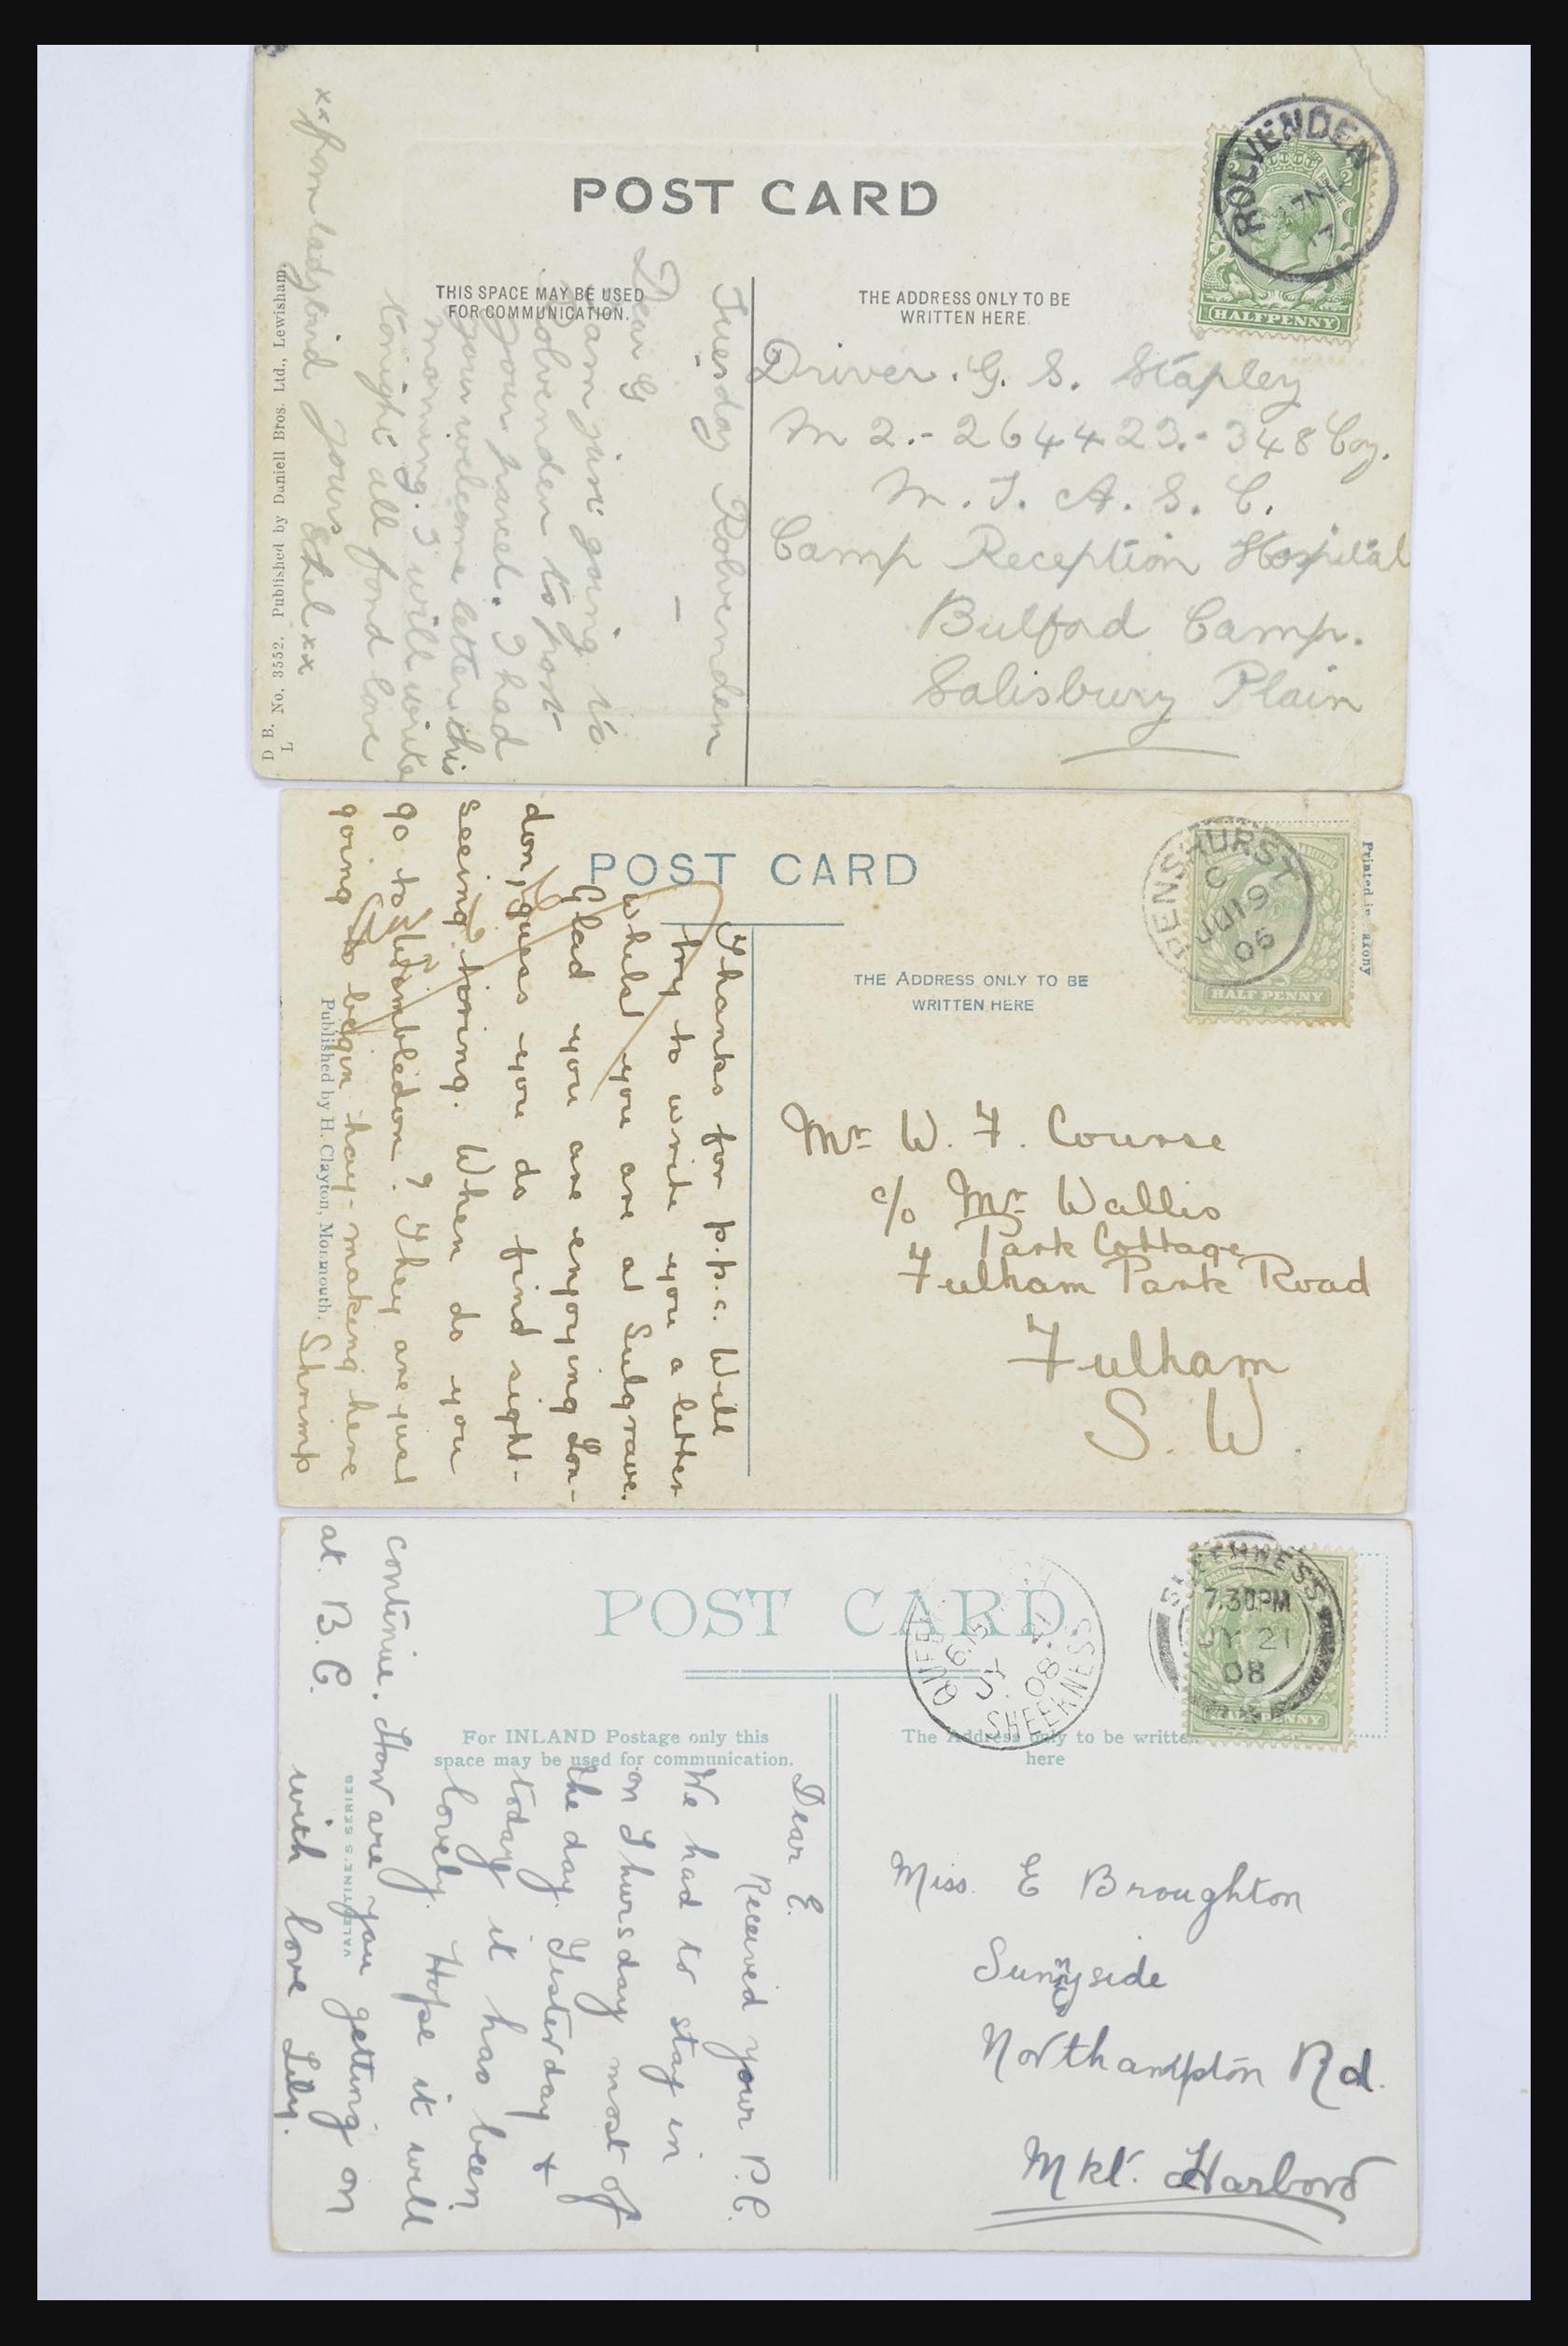 POST CARD
THIS SPACE MAY BE USED
FOR COMMUNICATION.
THE ADDRESS ONLY TO BE
WRITTEN HERE.
ROLVENDEN
17
HALFPENNY
Tuesday Rolvenden
Dear G
I am just going to
Rolvenden to post
your parcel. I had
your welcome letter this
morning. I will write
tonight all fond love
xx from ladybird yours Ethel xx
D B. No. 3552. Published by Daniell Bros. Ltd., Lewisham.
L
Driver. G. S. Stapley
M 2.- 264423.- 348 Coy.
M. T. A. S. C.
Camp Reception Hospital
Bulford Camp.
Salisbury Plain
POST CARD
THE ADDRESS ONLY TO BE
WRITTEN HERE
PENSHURST
C
JU 19
06
HALF PENNY
Printed in
Thanks for p.p.c. Will
try to write you a letter
whilst you are at Sulgrave.
Glad you are enjoying Lon-
don, guess you do find sight-
seeing tiring. When do you
go to Wimbledon? They are just
going to begin hay-making here
Shrimp
Published by H. Clayton, Monmouth.
Mr W. F. Course
c/o Mr Wallis
Park Cottage
Fulham Park Road
Fulham
S. W.
POST CARD.
For INLAND Postage only this
space may be used for communication.
The Address only to be written
here
SHEERNESS
6.15
JY
08
SHEERNESS
7.30PM
JY 21
08
Dear E.
Received your P.C.
We had to stay in
on Thursday most of
the day. Yesterday &
today it has been
lovely. Hope it will
continue. How are you getting on
at B. C.
with love Lily.
VALENTINE'S SERIES
Miss E Broughton
Sunnyside
Northampton Rd.
Mkt. Harboro